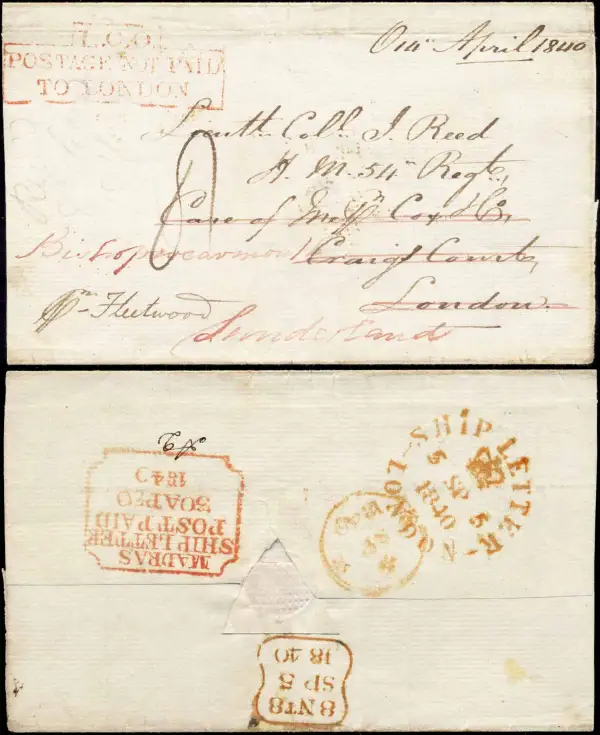 I.G.O.
POSTAGE NOT PAID
TO LONDON
April 1840
Lieutt. Coll. J. Reed
H. M. 54th Regt.,
Care of Messrs Cox & Co,
Craigs Court,
London.
Bishopwearmouth
Sunderland
pr Fleetwood
SHIP LETTER
LONDON
MADRAS
SHIP LETTER
POST PAID
30 AP
1840
8 NT 8
SP 5
1840